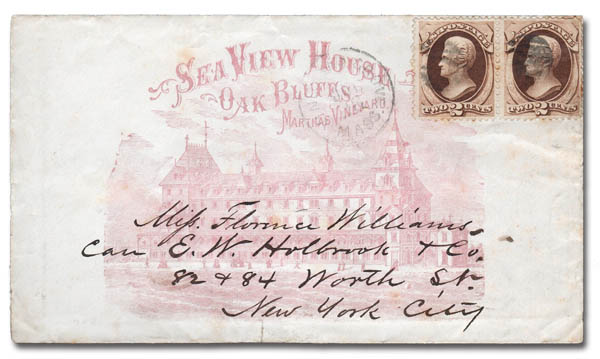 SEA VIEW HOUSE
OAK BLUFFS.
MARTHA'S VINEYARD
MASS.
TWO 2 CENTS
TWO 2 CENTS
Miss. Florence Williams
Care E. W. Holbrook & Co.
82 & 84 Worth St.
New York City